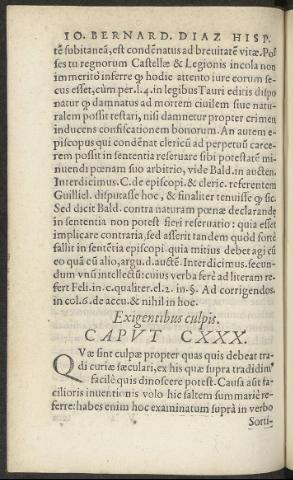 IO. BERNARD. DIAZ HISP.
tē subitaneā, est condēnatus ad breuitatē vitæ. Pos
ses tu regnorum Castellæ & Legionis incola non
immeritò inferre ꝙ hodie attento iure eorum se-
cus esset, cùm per. l. 4. in legibus Tauri editis dispo
natur ꝙ damnatus ad mortem ciuilem siue natu-
ralem possit testari, nisi damnetur propter crimen
inducens confiscationem bonorum. An autem e-
piscopus qui condēnat clericū ad perpetuū carce-
rem possit in sententia reseruare sibi potestatē mi-
nuendi pœnam suo arbitrio, vide Bald. in aucten.
Interdicimus. C. de episcopi. & cleric. referentem
Guilliel. disputasse hoc, & finaliter tenuisse ꝙ sic.
Sed dicit Bald. contra naturam pœnæ declarandę
in sententia non potest fieri reseruatio: quia esset
implicare contraria, sed asserit tandem quòd fortè
fallit in sentētia episcopi quia mitius debet agi cū
eo quā cū alio, argu. d. auctē. Interdicimus. secun-
dum vnū intellectū: cuius verba ferè ad literam re
fert Feli. in. c. qualiter. el. 2. in. §. Ad corrigendos.
in col. 6. de accu. & nihil in hoc.
Exigentibus culpis.
CAPVT CXXX.
QVæ sint culpæ propter quas quis debeat tra-
di curiæ sæculari, ex his quæ supra tradidim⁹
facilè quis dinoscere potest. Causa aūt fa-
cilioris inuentionis volo hic saltem summariè re-
ferre: habes enim hoc examinatum suprà in verbo
Sorti-